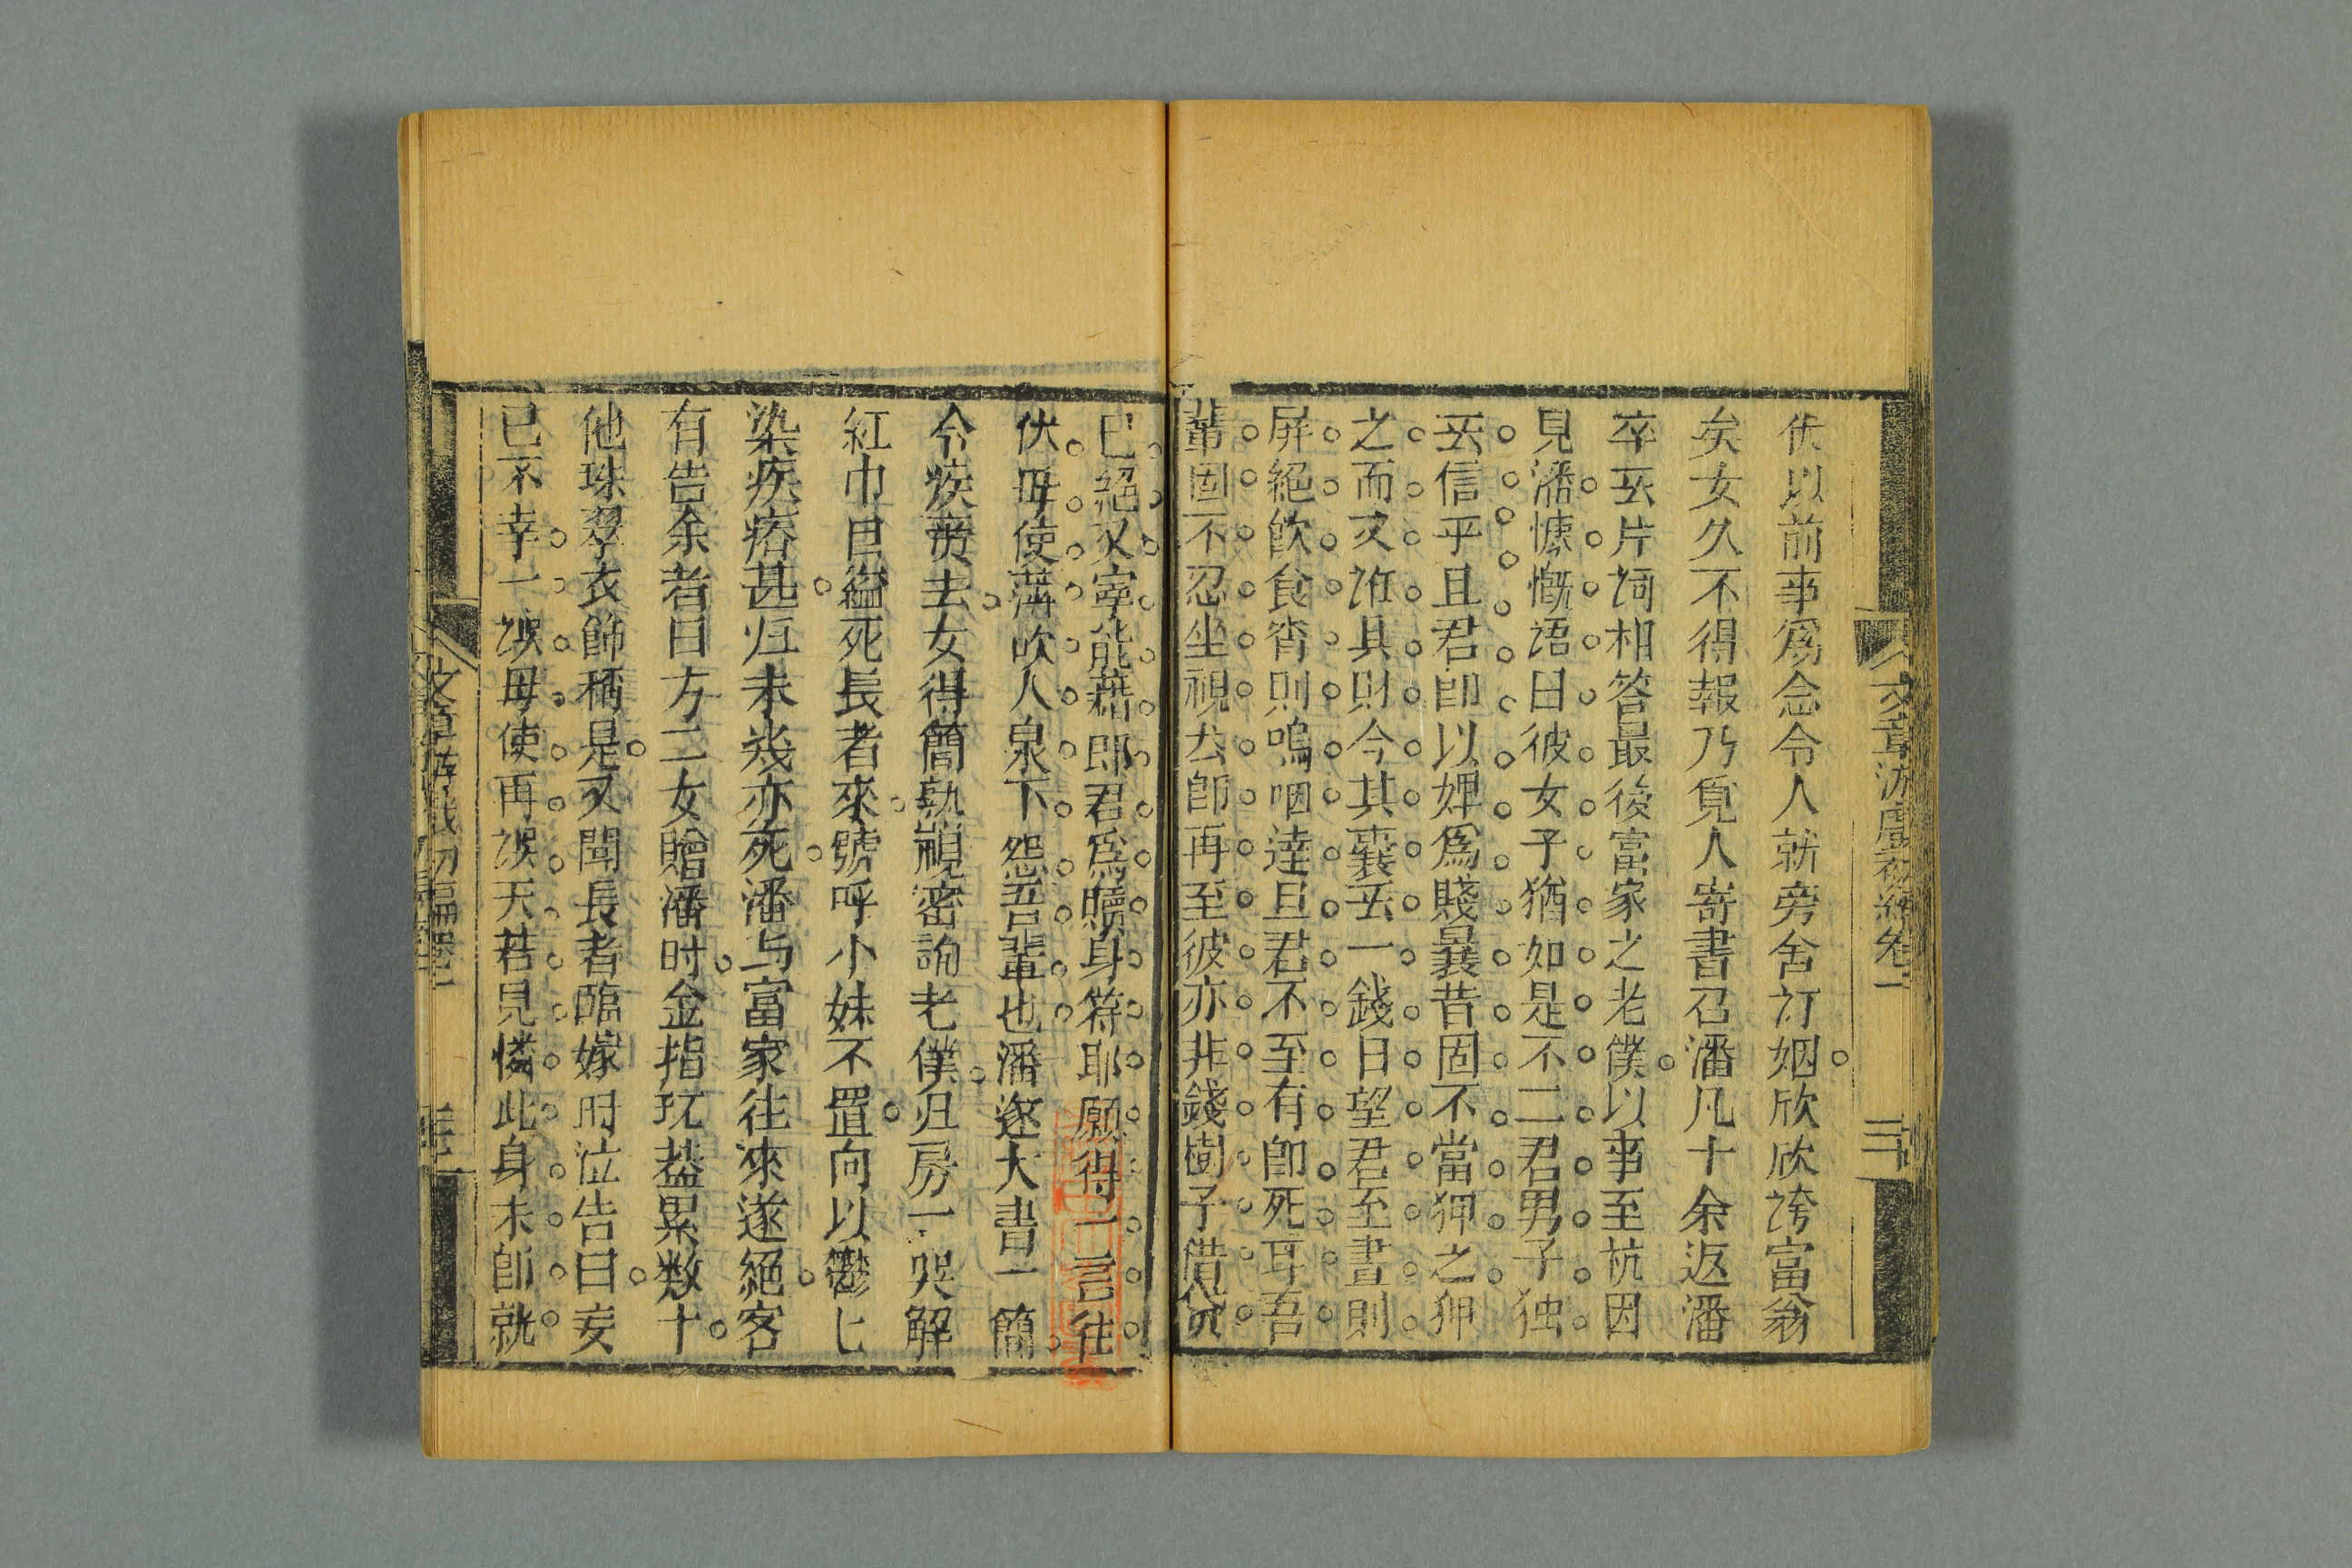 伏以前事爲念令人就旁舍訂姻欣欣誇富翁
矣女久不得報乃覓人寄書召潘凡十余返潘
卒无片詞相答最後富家之老僕以事至杭因
見潘慷慨語曰彼女子猶如是不二君男子独
无信乎且君卽以婢爲賤曩昔固不當狎之狎
之而又誑其財今其囊无一錢日望君至晝則
屏絕飮食宵則嗚咽達旦君不至有卽死耳吾
輩固不忍坐視去卽再至彼亦非錢樹子借
已絕又寧能藉郎君爲贖身符耶願得一言往
伏毋使薄吹人泉下怨吾輩也潘遂大書一簡
令疾賫去女得簡熟視密詢老僕归房一哭解
紅巾自縊死長者來號呼小妹不置向以鬱匕
染疾瘠甚归未幾亦死潘与富家往來遂絕客
有告余者曰方二女贈潘时金指玩葢累数十
他珠翠衣飾稱是又聞長者臨嫁时泣告曰妾
已不幸一誤毋使再誤天若見憐此身未卽就
文章游戲初編卷一